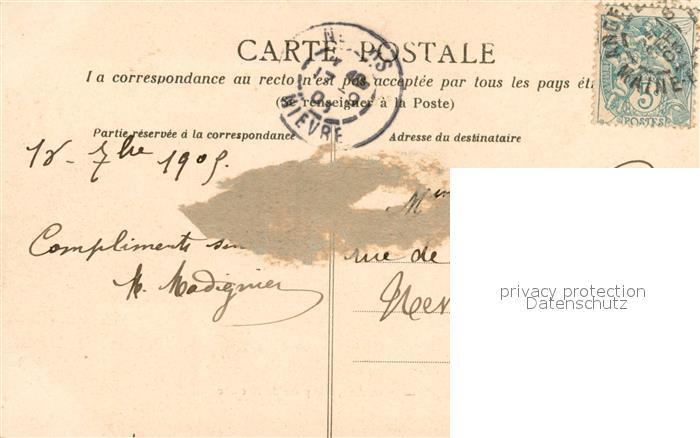 CARTE POSTALE
La correspondance au recto n'est pas acceptée par tous les pays ét
(Se renseigner à la Poste)
Partie réservée à la correspondance
Adresse du destinataire
NIEVRE
MAINE
5
POSTES
18 - 7bre 1905.
Compliments
M. Madignier
Mme
rue de
Nev
privacy protection
Datenschutz